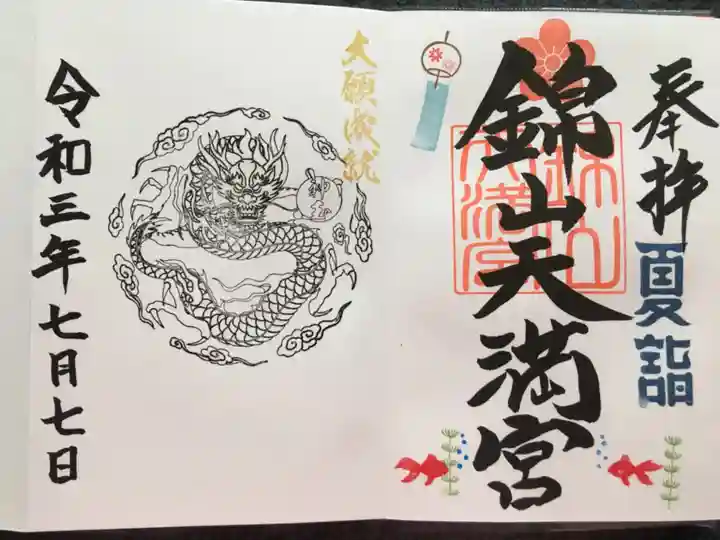 奉拝
夏詣
錦山天満宮
錦山天満宮
大願成就
令和三年七月七日